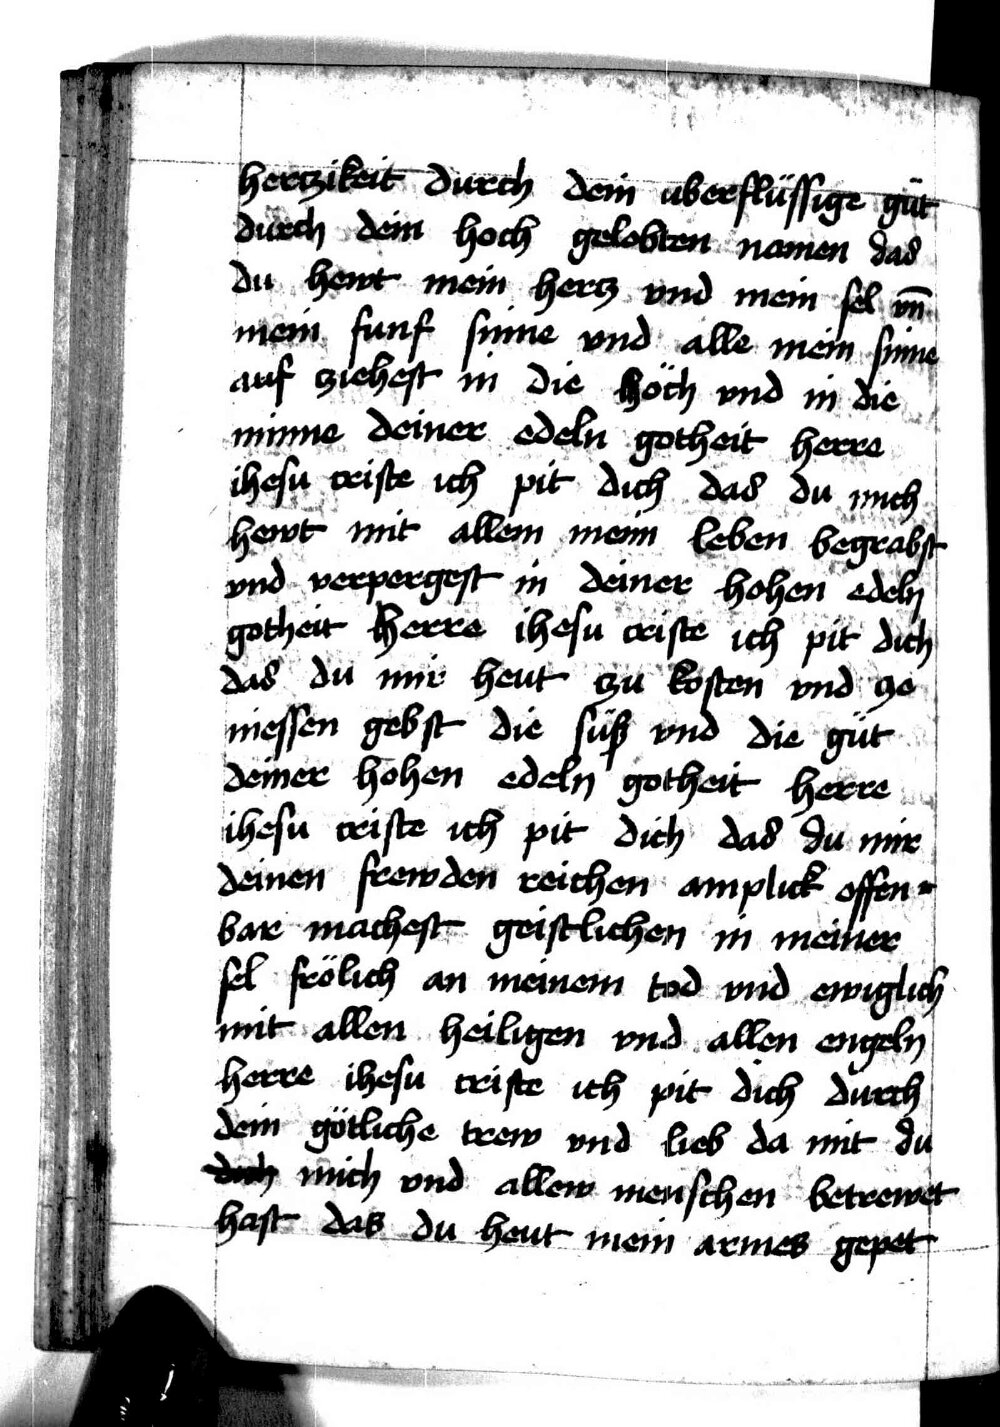 hertzikeit durch dein uberflüssige güt
durch dein hoch gelobten namen das
du hewt mein hertz vnd mein sel vn̅
mein funf sinne vnd alle mein sinne
auf tziehest in die höch vnd in die
minne deiner edeln gotheit herre
ihesu criste ich pit dich das du mich
hewt mit allem meim leben begrabst
vnd verpergest in deiner hohen edeln
gotheit herre ihesu criste ich pit dich
das du mir heut tzu kosten vnd tze
niessen gebst die süß vnd die güt
deiner hohen edeln gotheit herre
ihesu criste ich pit dich das du mir
deinen frewden reichen amplick offen-
bar machest geistlichen in meiner
sel frölich an meinem tod vnd ewiglich
mit allen heiligen vnd allen engeln
herre ihesu criste ich pit dich durch
dein götliche trew vnd lieb da mit du
dich mich vnd allew menschen betrewet
hast das du heut mein armes gepet